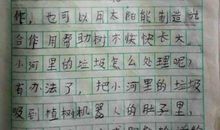 作，也可以用太阳能制造光
合作用帮助树木快快长大。
小河里的垃圾怎么处理呢？
有办法了，把小河里的垃圾
吸到植树机器人的肚子里，